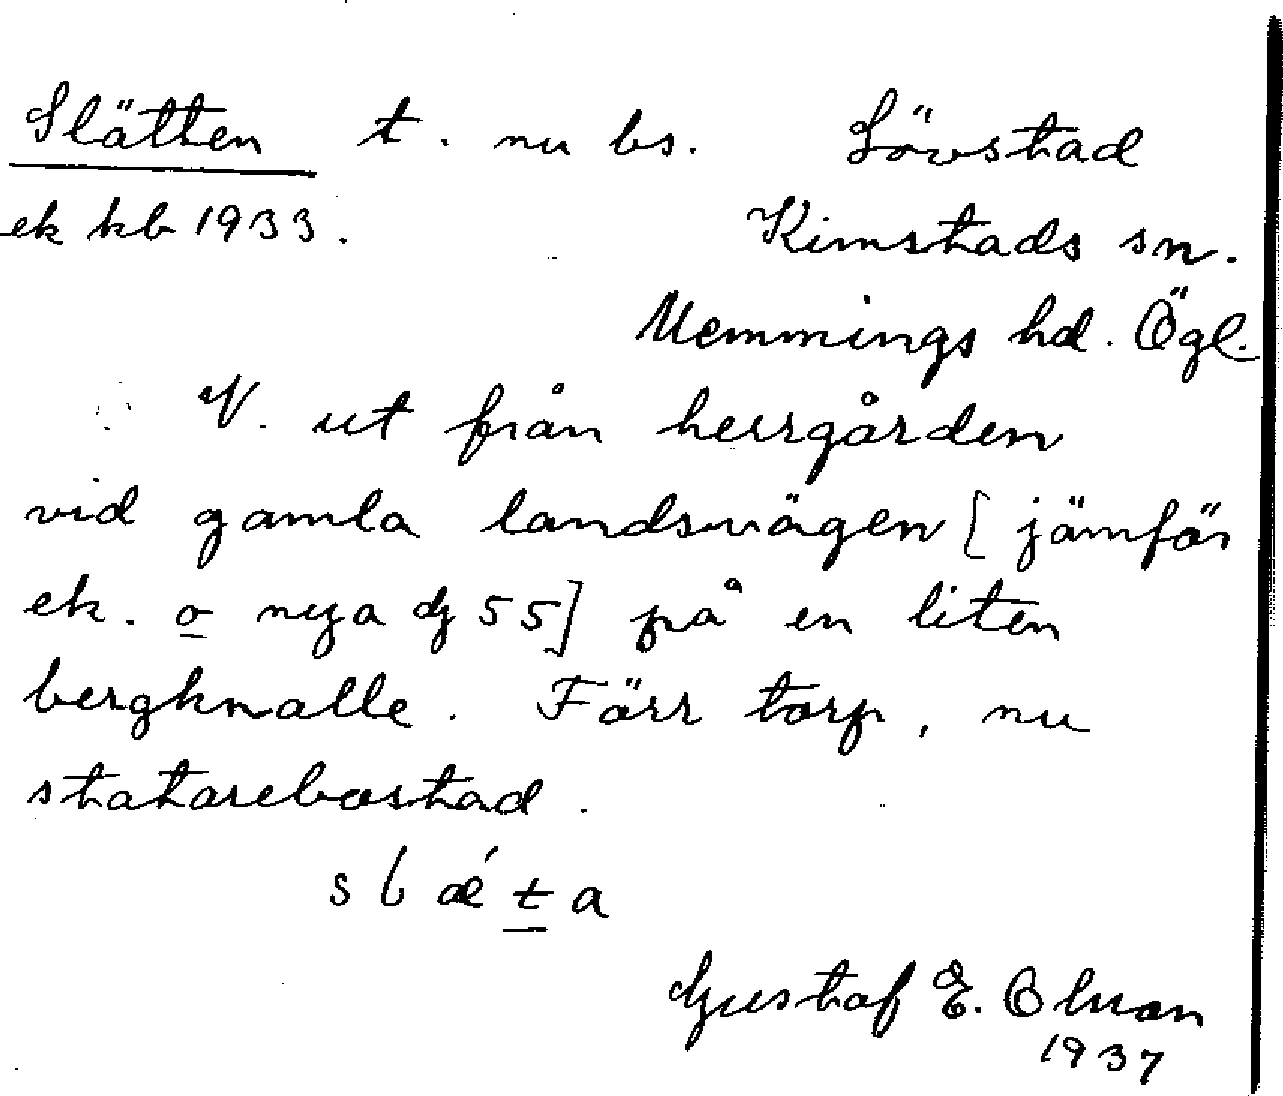 Slätten t. nu bs. Lövstad
ek kb 1933. Kimstads sn.
Memmings hd. Ögl.
N. ut från herrgården
vid gamla landsvägen [jämför
ek. o nya dj 55] på en liten
bergknalle. Förr torp, nu
statarebostad.
Gustaf E. Olson
1937